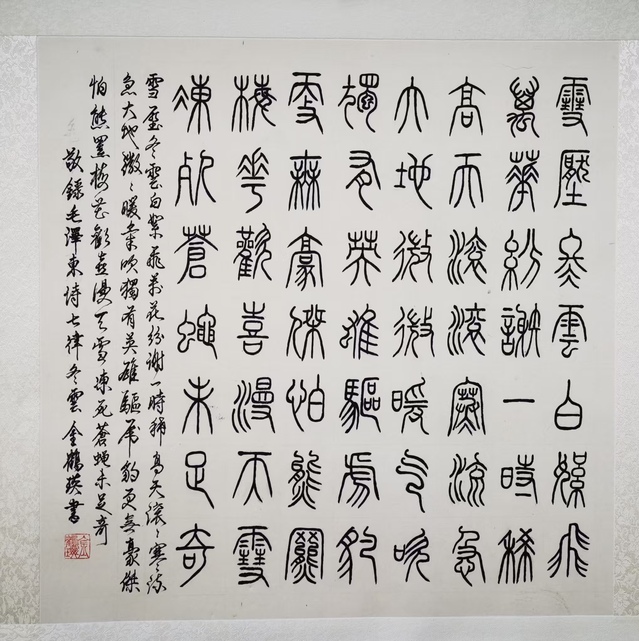 雪壓冬雲白絮飛
萬華紛謝一時稀
高天滾滾寒流急
大地微微暖气吹
獨有英雄驅虎豹
更無豪傑怕熊羆
梅華歡喜漫天雪
凍死蒼蠅未足奇
雪壓冬雲白絮飛萬花紛謝一時稀高天滾〻寒流
急大地微〻暖氣吹獨有英雄驅虎豹更無豪傑
怕熊羆梅花歡喜漫天雪凍死蒼蠅未足奇
敬錄毛澤東詩七律冬雲 金鶴瑛書